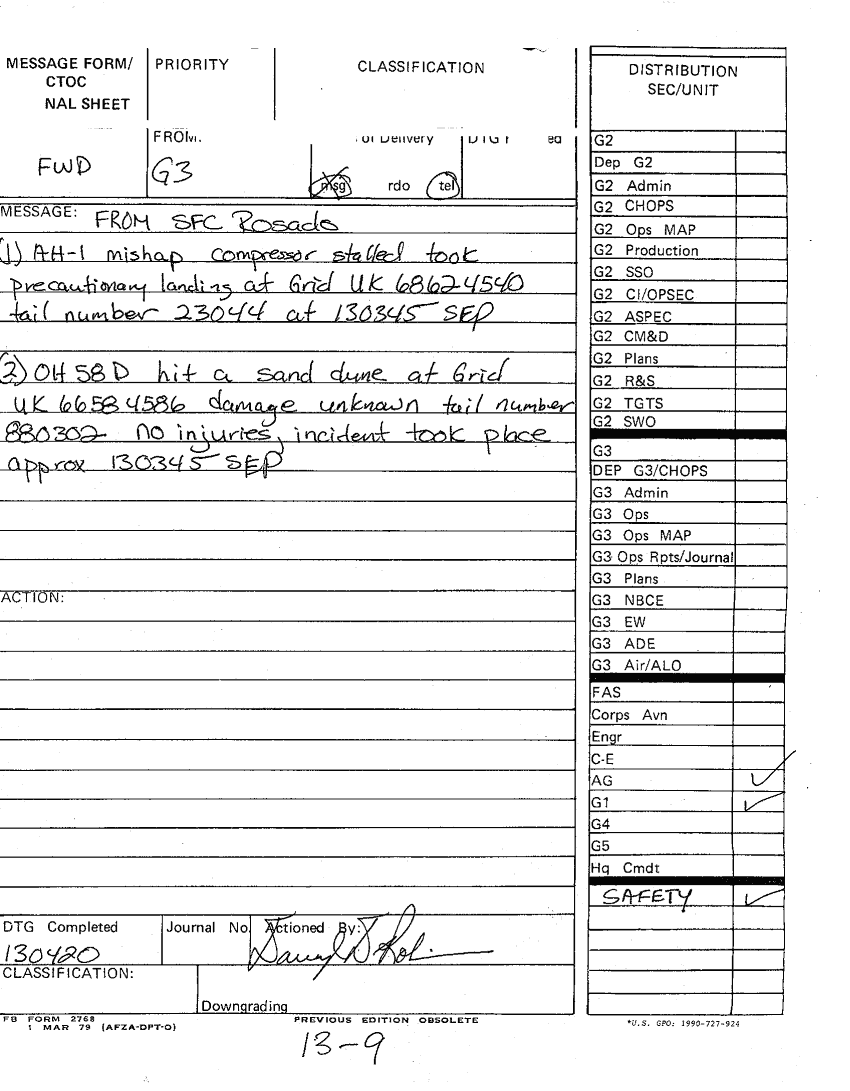 MESSAGE FORM/
CTOC
NAL SHEET
PRIORITY
CLASSIFICATION
FWD
FROM:
G3
of Delivery
msg rdo tel
MESSAGE: FROM SFC Rosado
(1) AH-1 mishap compressor stalled took
precautionary landing at Grid UK 68624540
tail number 23044 at 130345 SEP
(2) OH 58 D hit a sand dune at Grid
UK 66584586 damage unknown tail number
880302 no injuries, incident took place
approx 130345 SEP
ACTION:
DTG Completed
130420
Journal No.
Actioned By:
CLASSIFICATION:
Downgrading
FB FORM 2768
1 MAR 79 (AFZA-DPT-O)
PREVIOUS EDITION OBSOLETE
13-9
DISTRIBUTION
SEC/UNIT
G2
Dep G2
G2 Admin
G2 CHOPS
G2 Ops MAP
G2 Production
G2 SSO
G2 CI/OPSEC
G2 ASPEC
G2 CM&D
G2 Plans
G2 R&S
G2 TGTS
G2 SWO
G3
DEP G3/CHOPS
G3 Admin
G3 Ops
G3 Ops MAP
G3 Ops Rpts/Journal
G3 Plans
G3 NBCE
G3 EW
G3 ADE
G3 Air/ALO
FAS
Corps Avn
Engr
C-E
AG
G1
G4
G5
Hq Cmdt
SAFETY
*U.S. GPO: 1990-727-924